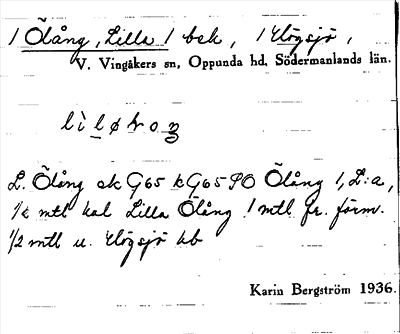 1 Ölång, Lilla 1 bek, 1 Högsjö,
V. Vingåkers sn, Oppunda hd, Södermanlands län.
L. Ölång ek G65 k G65 PO Ölång 1, L:a,
mtl kal Lilla Ölång 1 mtl fr. förm.
1/2 mtl u. Högsjö
Karin Bergström 1936.